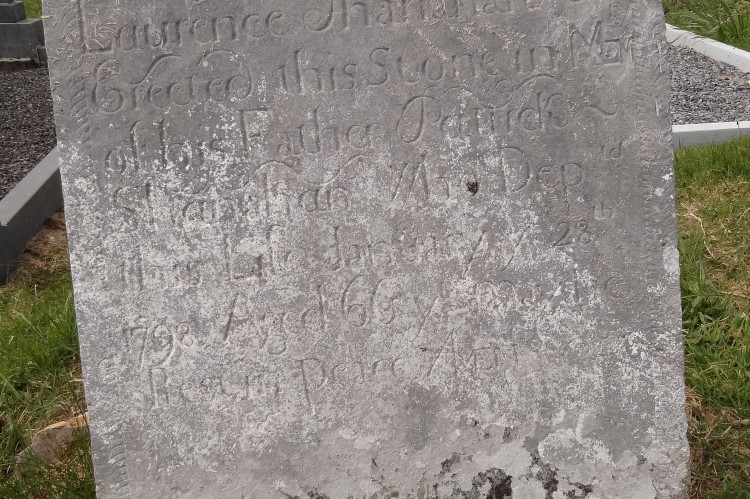 Laurence Shanahan
Erected this Stone in Mem
of his Father Patrick
Shanahan Who Dep'd
this Life January ye 28th
1798 Aged 66 yrs may he
Rest in Peace Am